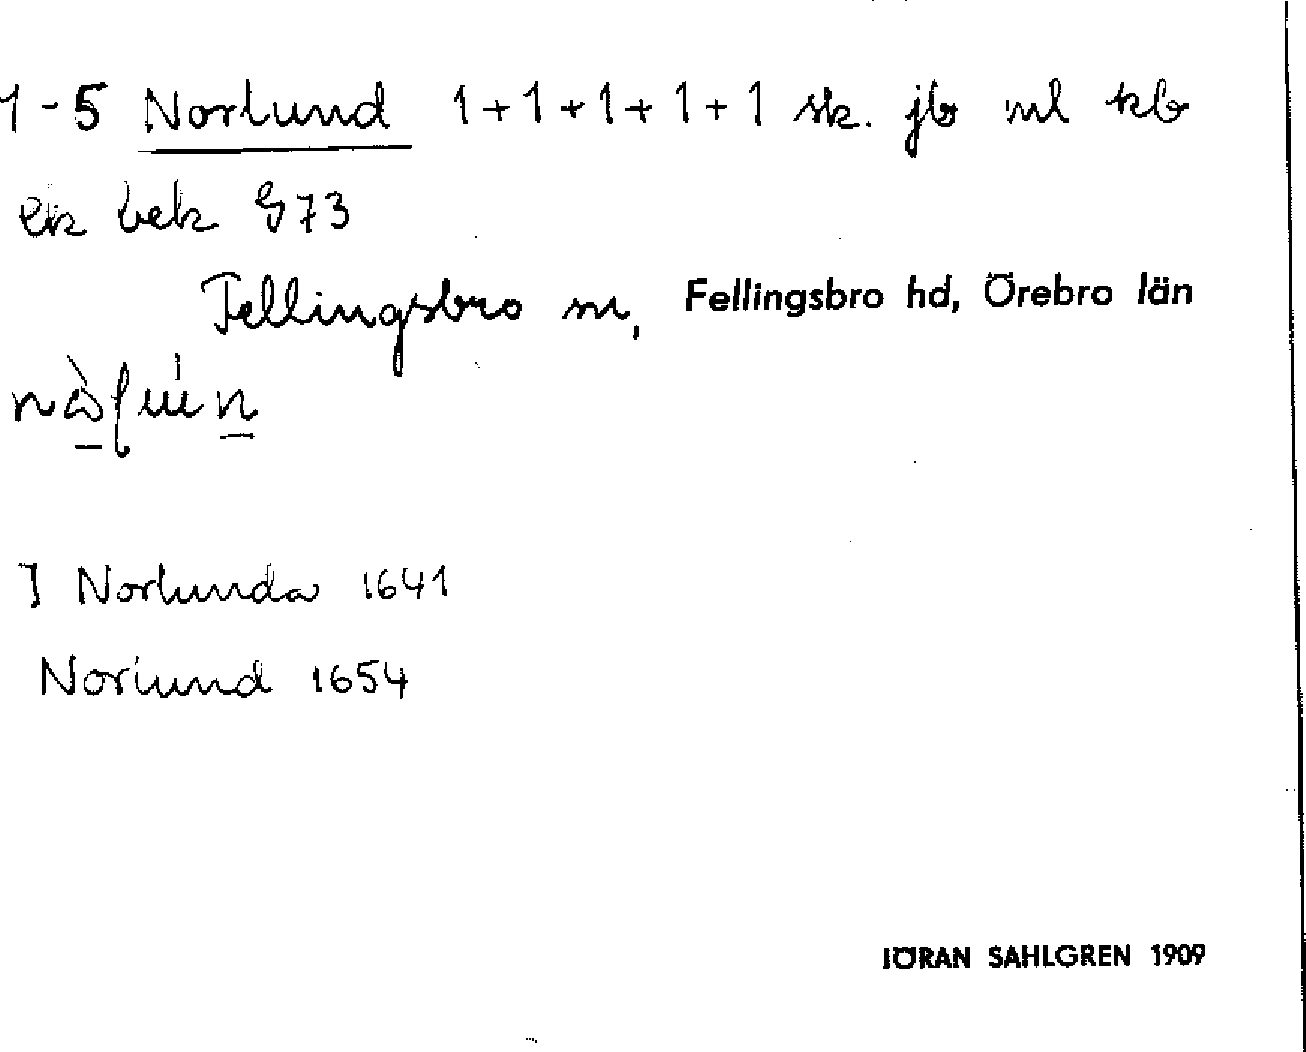 1-5 Norlund 1+1+1+1+1 sk. jb ml kb
ek bek G73
Fellingsbro sn, Fellingsbro hd, Örebro län
J Norlunda 1641
Norlund 1654
JÖRAN SAHLGREN 1909